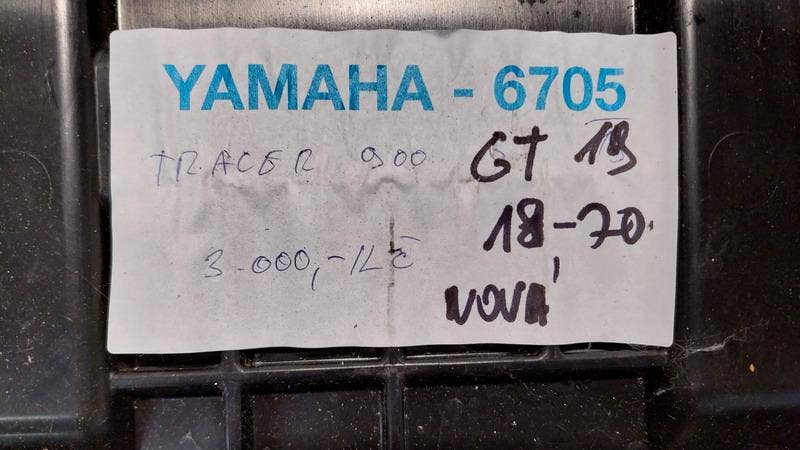 YAMAHA - 6705
TRACER 900 GT 19
18-20.
3.000,-Kč
NOVÁ